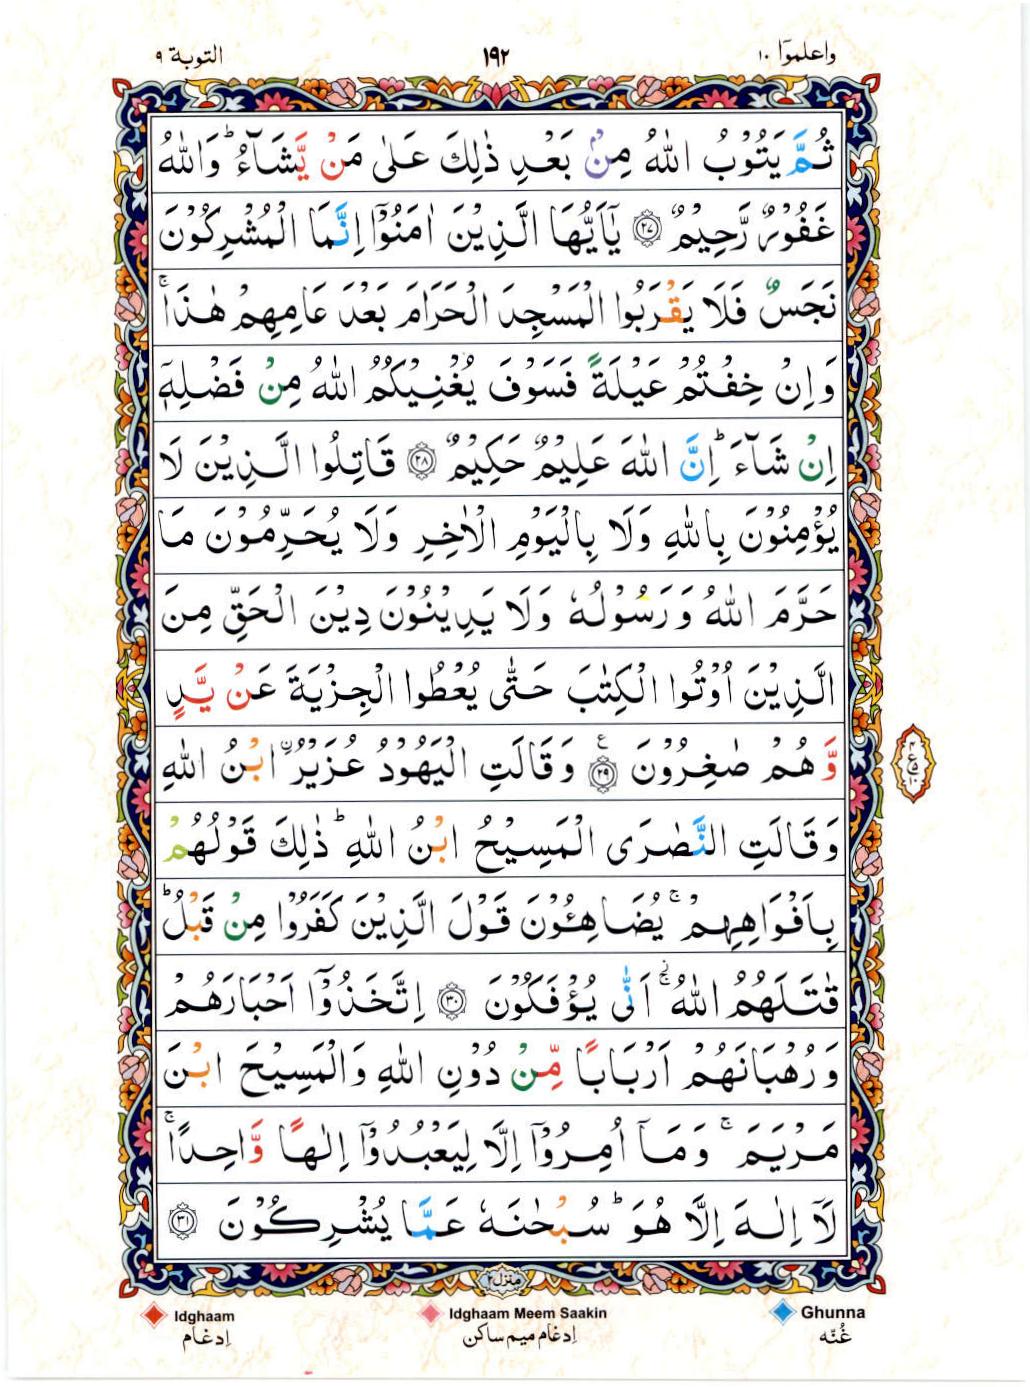 واعلموٓا ١٠
١٩٢
التوبة ٩
ثُمَّ يَتُوْبُ اللّٰهُ مِنْۢ بَعْدِ ذٰلِكَ عَلٰى مَنْ يَّشَآءُ ؕ وَاللّٰهُ
غَفُوْرٌ رَّحِيْمٌ ﴿۲۷﴾ يٰۤاَيُّهَا الَّذِيْنَ اٰمَنُوْۤا اِنَّمَا الْمُشْرِكُوْنَ
نَجَسٌ فَلَا يَقْرَبُوا الْمَسْجِدَ الْحَرَامَ بَعْدَ عَامِهِمْ هٰذَا ۚ
وَاِنْ خِفْتُمْ عَيْلَةً فَسَوْفَ يُغْنِيْكُمُ اللّٰهُ مِنْ فَضْلِهٖۤ
اِنْ شَآءَ ؕ اِنَّ اللّٰهَ عَلِيْمٌ حَكِيْمٌ ﴿۲۸﴾ قَاتِلُوا الَّذِيْنَ لَا
يُؤْمِنُوْنَ بِاللّٰهِ وَلَا بِالْيَوْمِ الْاٰخِرِ وَلَا يُحَرِّمُوْنَ مَا
حَرَّمَ اللّٰهُ وَرَسُوْلُهٗ وَلَا يَدِيْنُوْنَ دِيْنَ الْحَقِّ مِنَ
الَّذِيْنَ اُوْتُوا الْكِتٰبَ حَتّٰى يُعْطُوا الْجِزْيَةَ عَنْ يَّدٍ
وَّهُمْ صٰغِرُوْنَ ﴿۲۹﴾ ع وَقَالَتِ الْيَهُوْدُ عُزَيْرُ ۨابْنُ اللّٰهِ
وَقَالَتِ النَّصٰرَى الْمَسِيْحُ ابْنُ اللّٰهِ ؕ ذٰلِكَ قَوْلُهُمْ
بِاَفْوَاهِهِمْ ۚ يُضَاهِـُٔوْنَ قَوْلَ الَّذِيْنَ كَفَرُوْا مِنْ قَبْلُ ؕ
قٰتَلَهُمُ اللّٰهُ ۚ اَنّٰى يُؤْفَكُوْنَ ﴿۳۰﴾ اِتَّخَذُوْۤا اَحْبَارَهُمْ
وَرُهْبَانَهُمْ اَرْبَابًا مِّنْ دُوْنِ اللّٰهِ وَالْمَسِيْحَ ابْنَ
مَرْيَمَ ۚ وَمَاۤ اُمِرُوْۤا اِلَّا لِيَعْبُدُوْۤا اِلٰهًا وَّاحِدًا ۚ
لَاۤ اِلٰهَ اِلَّا هُوَ ؕ سُبْحٰنَهٗ عَمَّا يُشْرِكُوْنَ ﴿۳۱﴾
منزل٢
Idghaam Idghaam Meem Saakin Ghunna
اِدغَام اِدغَام میم ساکن غُنّه